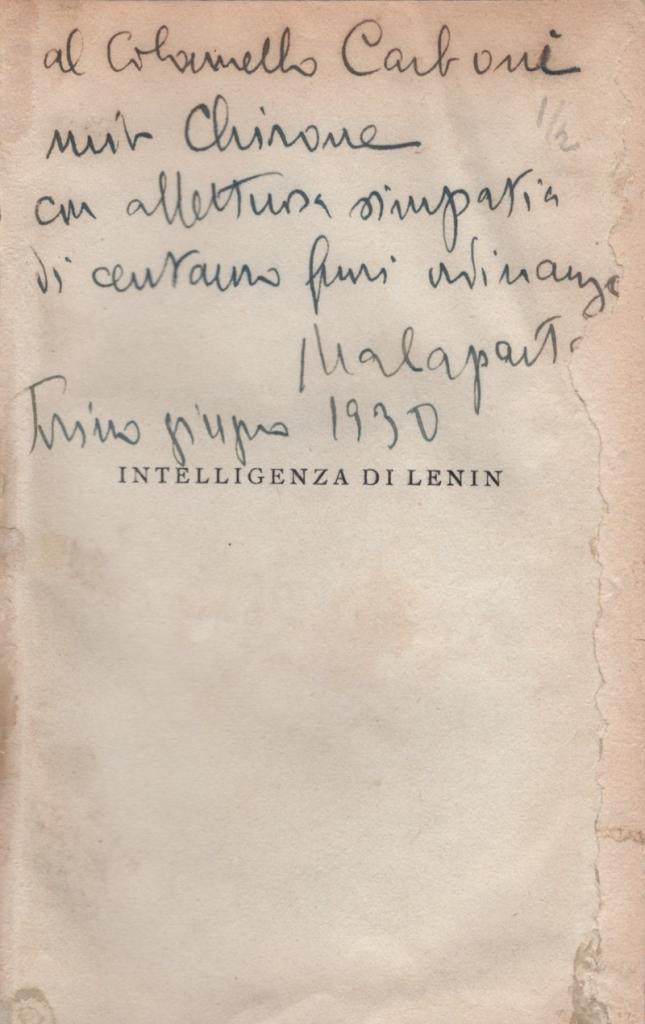 al Colonnello Carboni
1/2
mio Chirone
con affettuosa simpatia
di centauro fuori ordinanza
Malaparte
Torino giugno 1930
INTELLIGENZA DI LENIN